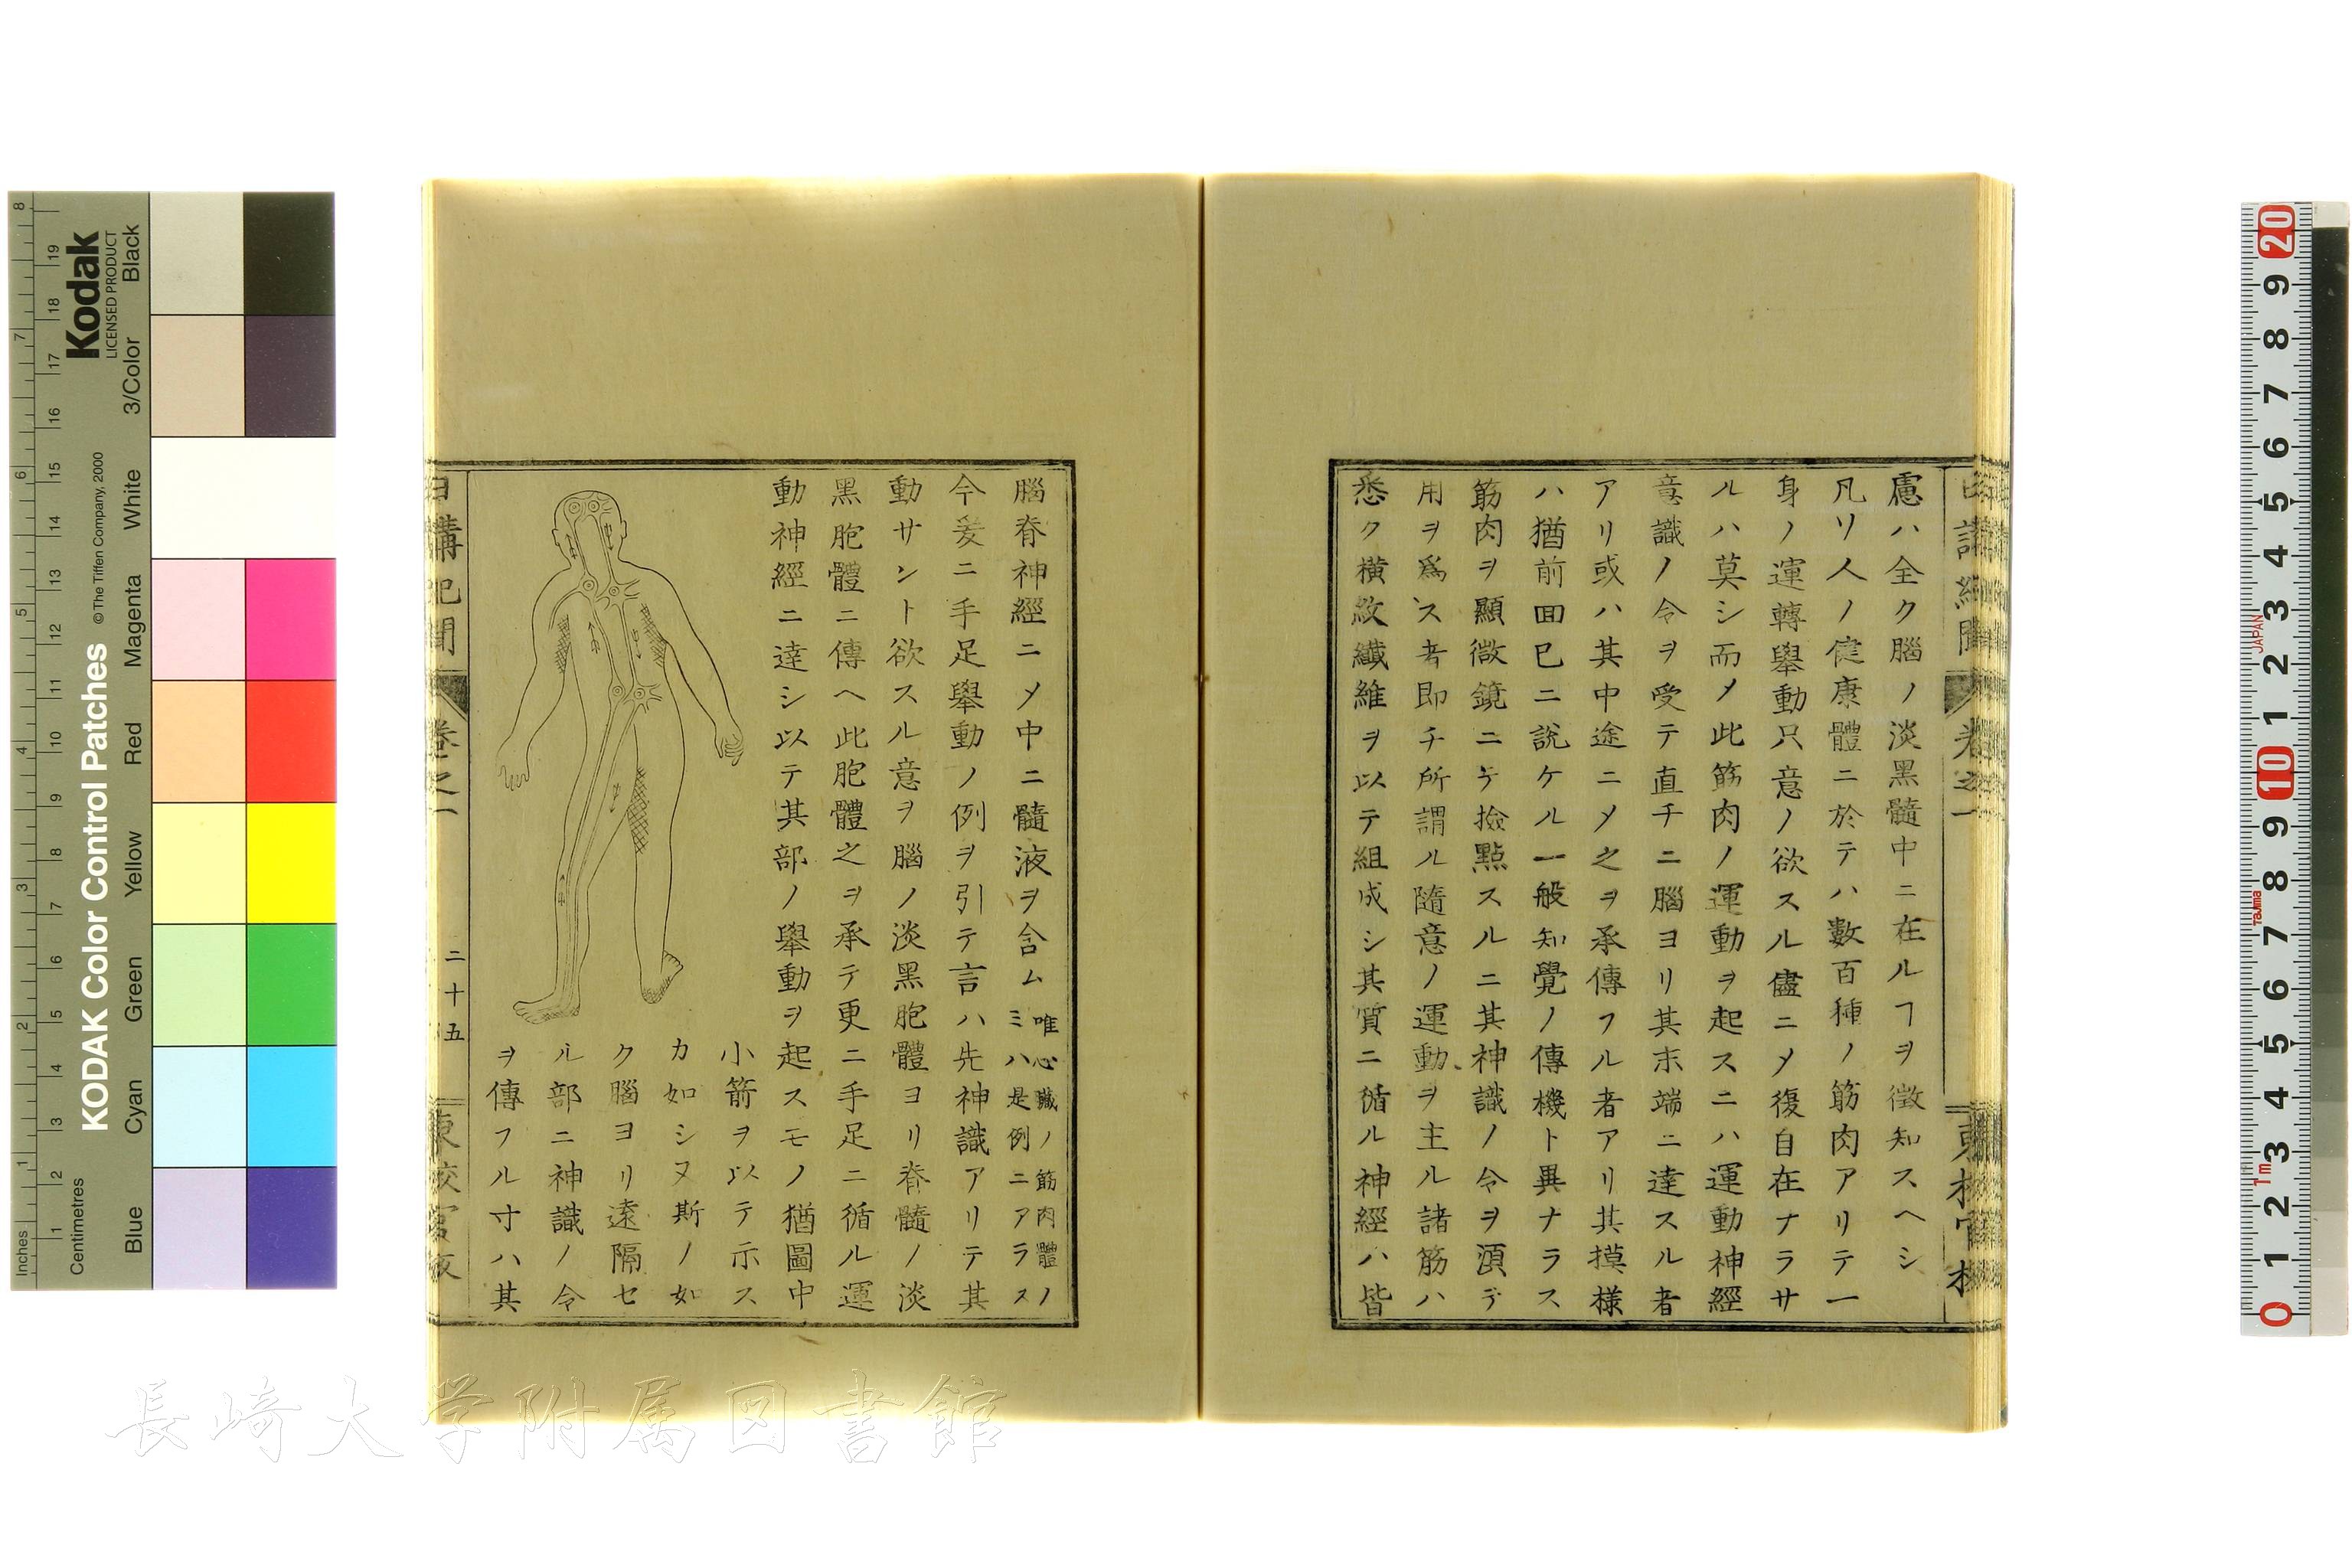 慮ハ全ク腦ノ淡黑髓中ニ在ルヿヲ徴知スヘシ
凡ソ人ノ健康體ニ於テハ數百種ノ筋肉アリテ一
身ノ運轉舉動只意ノ欲スル儘ニ〆復自在ナラサ
ルハ莫シ而〆此筋肉ノ運動ヲ起スニハ運動神經
意識ノ令ヲ受テ直チニ腦ヨリ其末端ニ達スル者
アリ或ハ其中途ニ〆之ヲ承傳フル者アリ其摸樣
ハ猶前回已ニ説ケル一般知覺ノ傳機ト異ナラス
筋肉ヲ顯微鏡ニテ撿點スルニ其神識ノ令ヲ須テ
用ヲ爲ス者即チ所謂ル隨意ノ運動ヲ主ル諸筋ハ
悉ク橫紋纎維ヲ以テ組成シ其質ニ循ル神經ハ皆
腦脊神經ニ〆中ニ髓液ヲ含ム唯心臟ノ筋肉體ノ
ミハ是例ニアラス
今爰ニ手足舉動ノ例ヲ引テ言ハ先神識アリテ其
動サント欲スル意ヲ腦ノ淡黑胞體ヨリ脊髓ノ淡
黑胞體ニ傳ヘ此胞體之ヲ承テ更ニ手足ニ循ル運
動神經ニ達シ以テ其部ノ舉動ヲ起スモノ猶圖中
小箭ヲ以テ示ス
カ如シ又斯ノ如
ク腦ヨリ遠隔セ
ル部ニ神識ノ令
ヲ傳フル寸ハ其
日講紀聞 卷之一 二十五
長崎大学附属図書館
KODAK Color Control Patches
©The Tiffen Company, 2000
Kodak
LICENSED PRODUCT
Inches
Centimetres
Blue Cyan Green Yellow Red Magenta White 3/Color Black
1 2 3 4 5 6 7 8
1 2 3 4 5 6 7 8 9 10 11 12 13 14 15 16 17 18 19
0 1 2 3 4 5 6 7 8 9 10 1 2 3 4 5 6 7 8 9 20
1m
Tajima
JAPAN